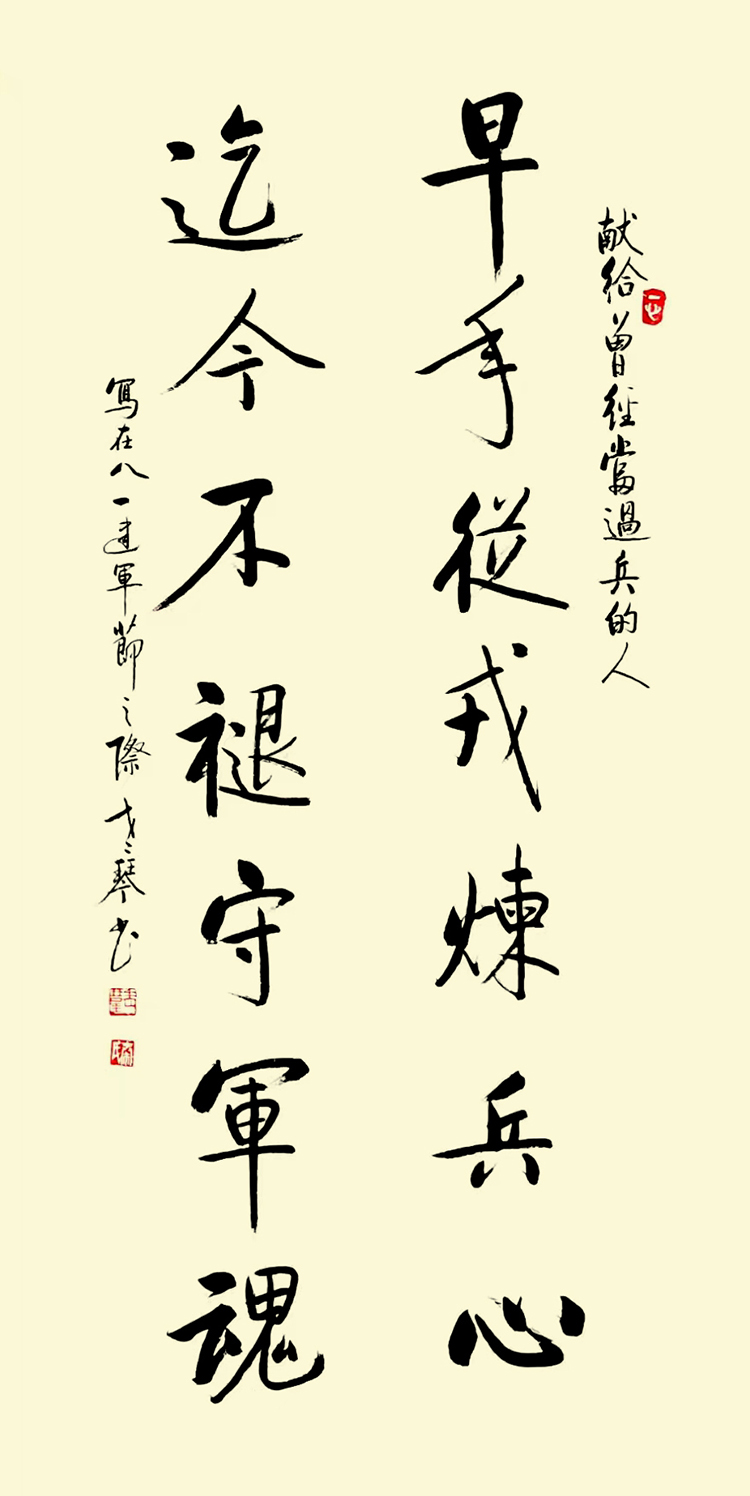 献给曾经當過兵的人
早年從戎煉兵心
迄今不褪守軍魂
寫在八一建軍節之際 戈琴书